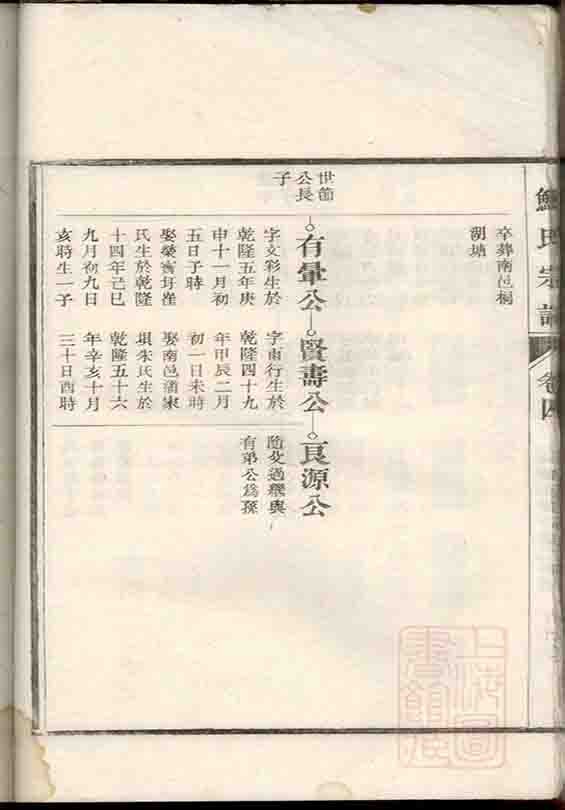 氏宗譜
卷四
卒葬南邑桐
湖塘
世節
公長
子
有暈公
字文彩生於
乾隆五年庚
申十一月初
五日子時
娶欒窰圩崔
氏生於乾隆
十四年己巳
九月初九日
亥時生一子
賢壽公
字南行生於
乾隆四十九
年甲辰二月
初一日未時
娶南邑蒲家
垻朱氏生於
乾隆五十六
年辛亥十月
三十日酉時
良源公
隨父過繼與
有弟公爲孫
上海圖書館藏